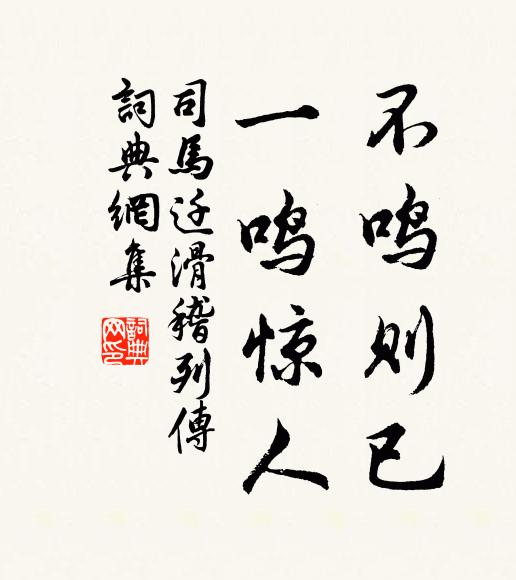 不鸣则已
一鸣惊人
司馬迁滑稽列傳
詞典網集
詞典
网印